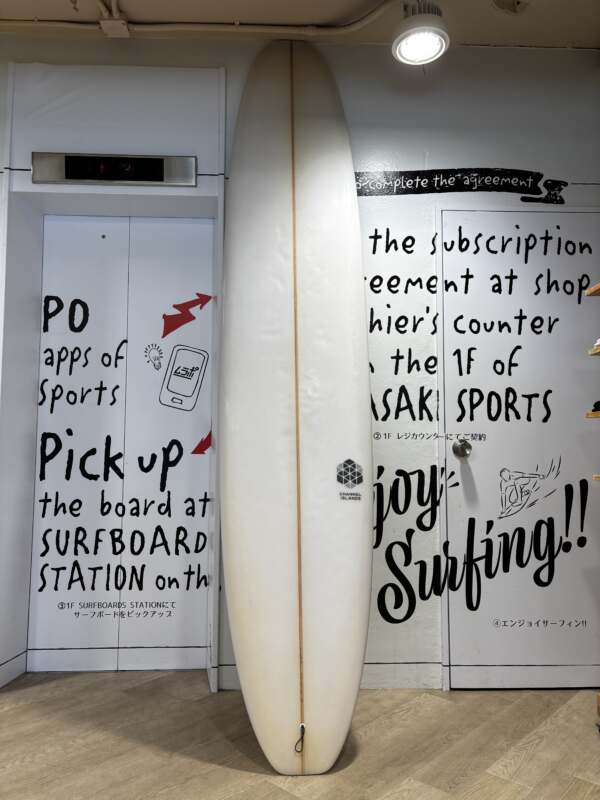 PO
apps of
sports
ムラポ
Pick up
the board at
SURFBOARD
STATION on th
③1F SURFBOARDS STATIONにて
サーフボードをピックアップ
CHANNEL
ISLANDS
complete the agreement
the subscription
reement at shop
hier's counter
the 1F of
ASAKI SPORTS
②1F レジカウンターにてご契約
joy
Surfing!!
④エンジョイサーフィン!!